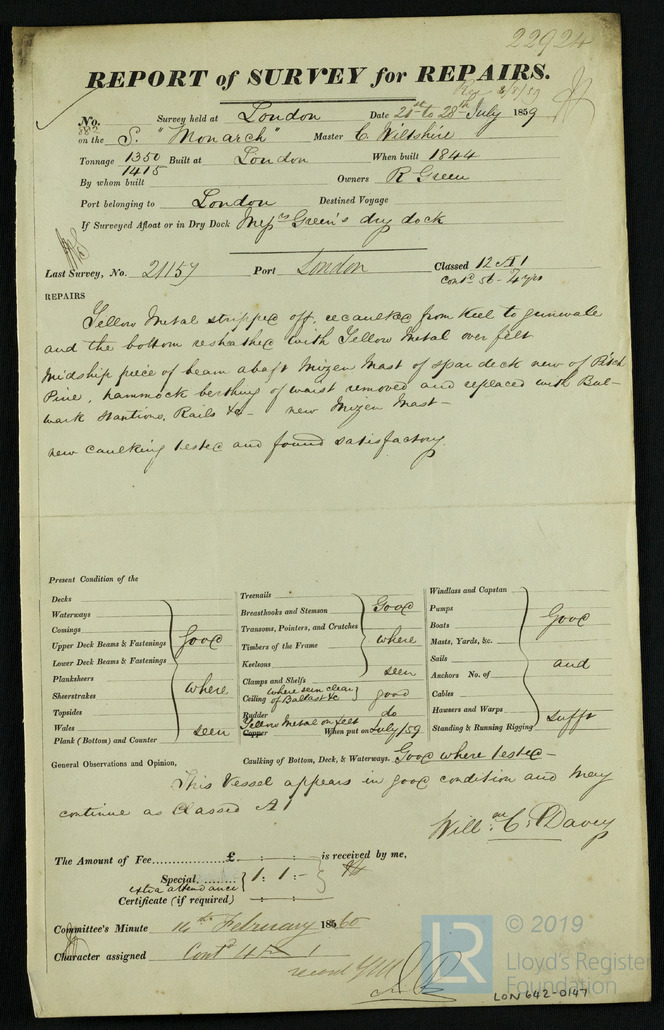 22924
REPORT of SURVEY for REPAIRS.
No. 882 Survey held at London Date 21st to 28th July 1859
on the S. "Monarch" Master C. Wiltshire
Tonnage 1350 1415 Built at London When built 1844
By whom built Owners R Green
Port belonging to London Destined Voyage
If Surveyed Afloat or in Dry Dock Messrs Green's dry dock
Last Survey, No. 21157 Port London Classed 12 A 1
Contd 56 - 4 yrs
REPAIRS
Yellow Metal stripped off, recaulked from Keel to gunwale
and the bottom resheathed with Yellow Metal over felt
Midship piece of beam abaft Mizen Mast of spar deck new of Pitch
Pine, hammock berthing of waist removed and replaced with Bul-
wark Stantions, Rails &c - new Mizen Mast -
new caulking tested and found satisfactory.
Present Condition of the
Decks
Waterways
Comings
Upper Deck Beams & Fastenings
Lower Deck Beams & Fastenings
Planksheers
Sheerstrakes
Topsides
Wales
Plank (Bottom) and Counter
Good
where
seen
Treenails
Breasthooks and Stemson
Transoms, Pointers, and Crutches
Timbers of the Frame
Keelsons
Clamps and Shelfs
Good
where
seen
Ceiling where seen clear of Ballast &c good
Rudder do
Copper Yellow Metal on felt When put on July/59
Windlass and Capstan
Pumps
Boats
Masts, Yards, &c.
Sails
Anchors No. of
Cables
Hawsers and Warps
Standing & Running Rigging
Good
and
sufft
General Observations and Opinion, Caulking of Bottom, Deck, & Waterways. Good where tested -
This Vessel appears in good condition and may
continue as Classed A 1
Willm. C. Davey
The Amount of Fee £ is received by me,
Special 1: 1: -
extra attendance
Certificate (if required)
Committee's Minute 14th February 1860
Character assigned Contd
© 2019
LR
Lloyd's Register
Foundation
LON 642-0147